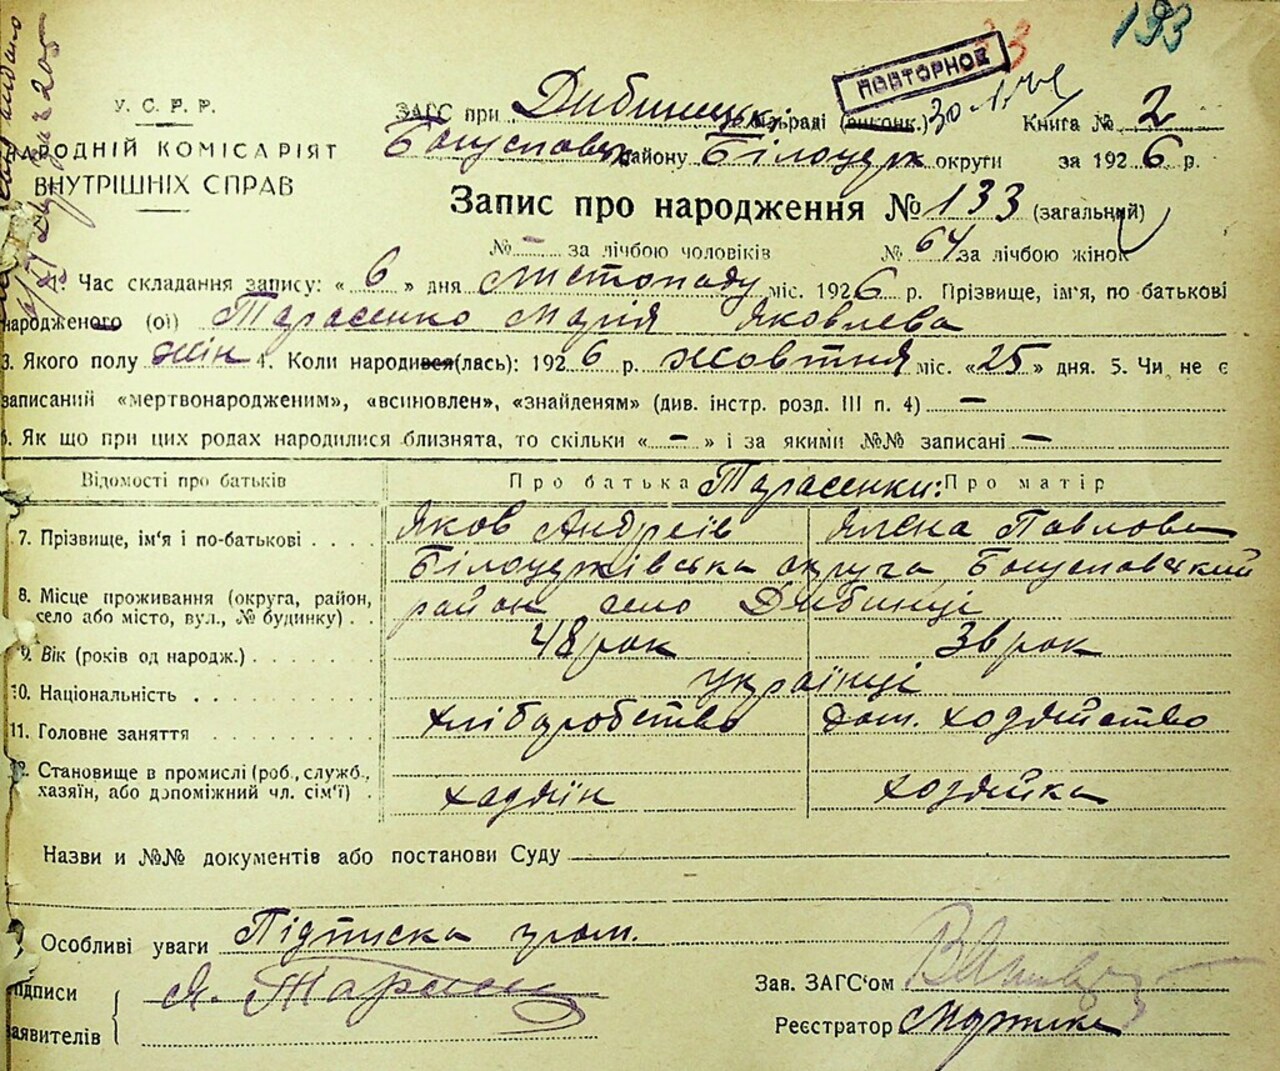 193
ПОВТОРНОЕ
У. С. Р. Р.
НАРОДНІЙ КОМІСАРІЯТ
ВНУТРІШНІХ СПРАВ
ЗАГС при Дибинецькій сільраді (виконк.) Книга № 2
Богуславськ району Білоцерк округи за 1926 р.
Запис про народження № 133 (загальний)
№ – за лічбою чоловіків № 64 за лічбою жінок
1. Час складання запису: « 6 » дня листопаду міс. 1926 р. Прізвище, ім'я, по батькові
народженого (ої) Тарасенко Марія Яковлева
3. Якого полу жін 4. Коли народився(лась): 1926 р. жовтня міс. «25» дня. 5. Чи не є
записаний «мертвонародженим», «всиновлен», «знайденям» (див. інстр. розд. III п. 4) –
6. Як що при цих родах народилися близнята, то скільки « – » і за якими №№ записані –
Відомості про батьків Про батька Тарасенки: Про матір
7. Прізвище, ім'я і по-батькові Яков Андреїв Ялена Павлова
Білоцерківська округа Богуславський
8. Місце проживання (округа, район, район село Дибинці
село або місто, вул., № будинку)
9. Вік (років од народж.) 48 рок 38 рок
10. Національність українці
11. Головне заняття хліборобство дом. ходяйство
12. Становище в промислі (роб., служб.,
хазяїн, або допоміжний чл. сім'ї) хадяїн ходяйка
Назви и №№ документів або постанови Суду
Особливі уваги Підписка гром.
Підписи Я. Тарасен
заявителів
Зав. ЗАГС'ом
Реєстратор